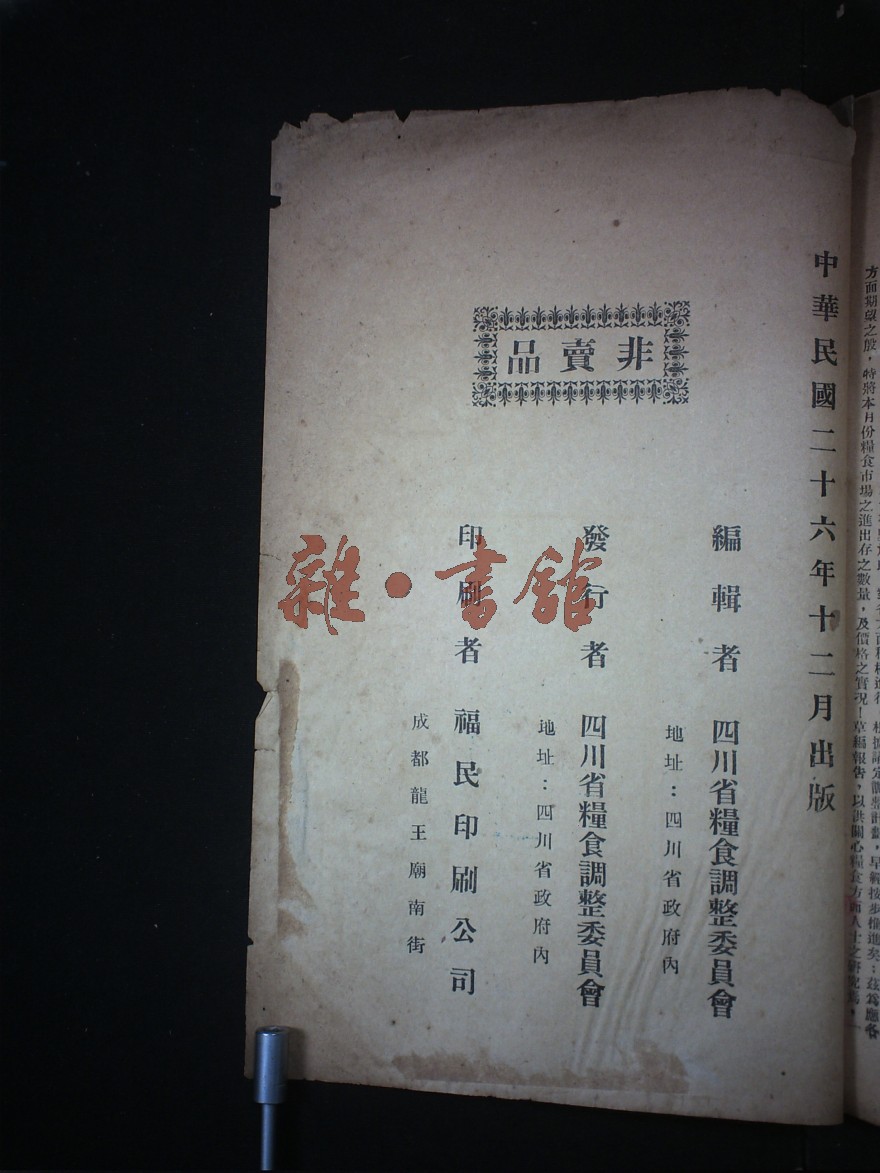 方面期望之殷，特將本月份糧食市場之進出存之數量，及價格之實況，草編報告，以供關心糧食方面人士之研究焉，一
中華民國二十六年十二月出版
非賣品
編輯者　四川省糧食調整委員會
地址：四川省政府內
發行者　四川省糧食調整委員會
地址：四川省政府內
印刷者　福民印刷公司
成都龍王廟南街
雜·書館